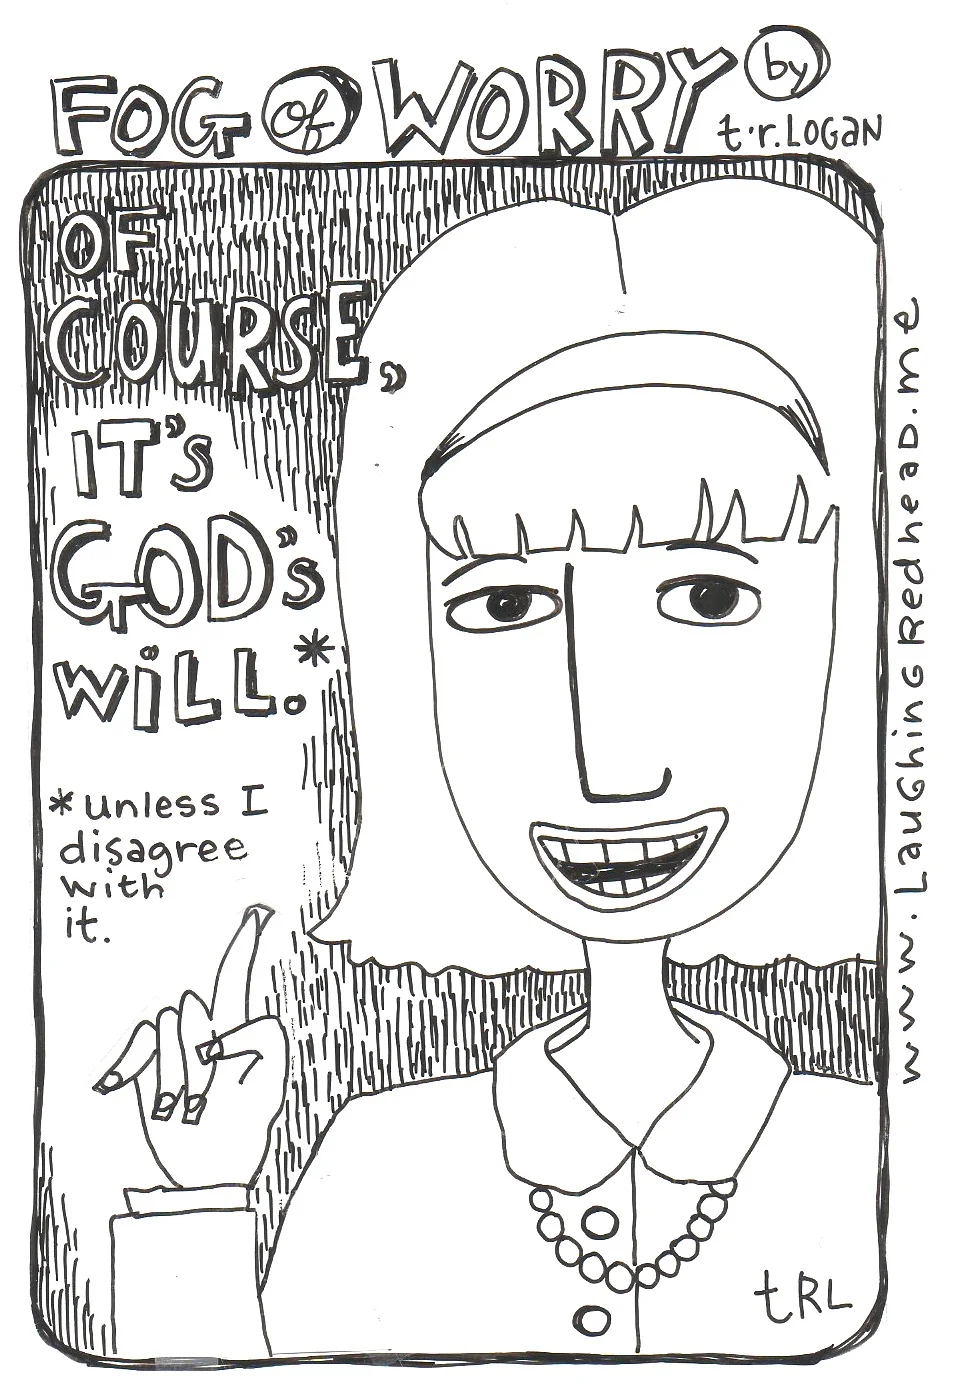 FOG of WORRY by
t.r. LOGAN
OF
COURSE,
IT's
GOD's
WiLL.*
*unless I
disagree
with
it.
www.LauGhinGRedheaD.me
tRL